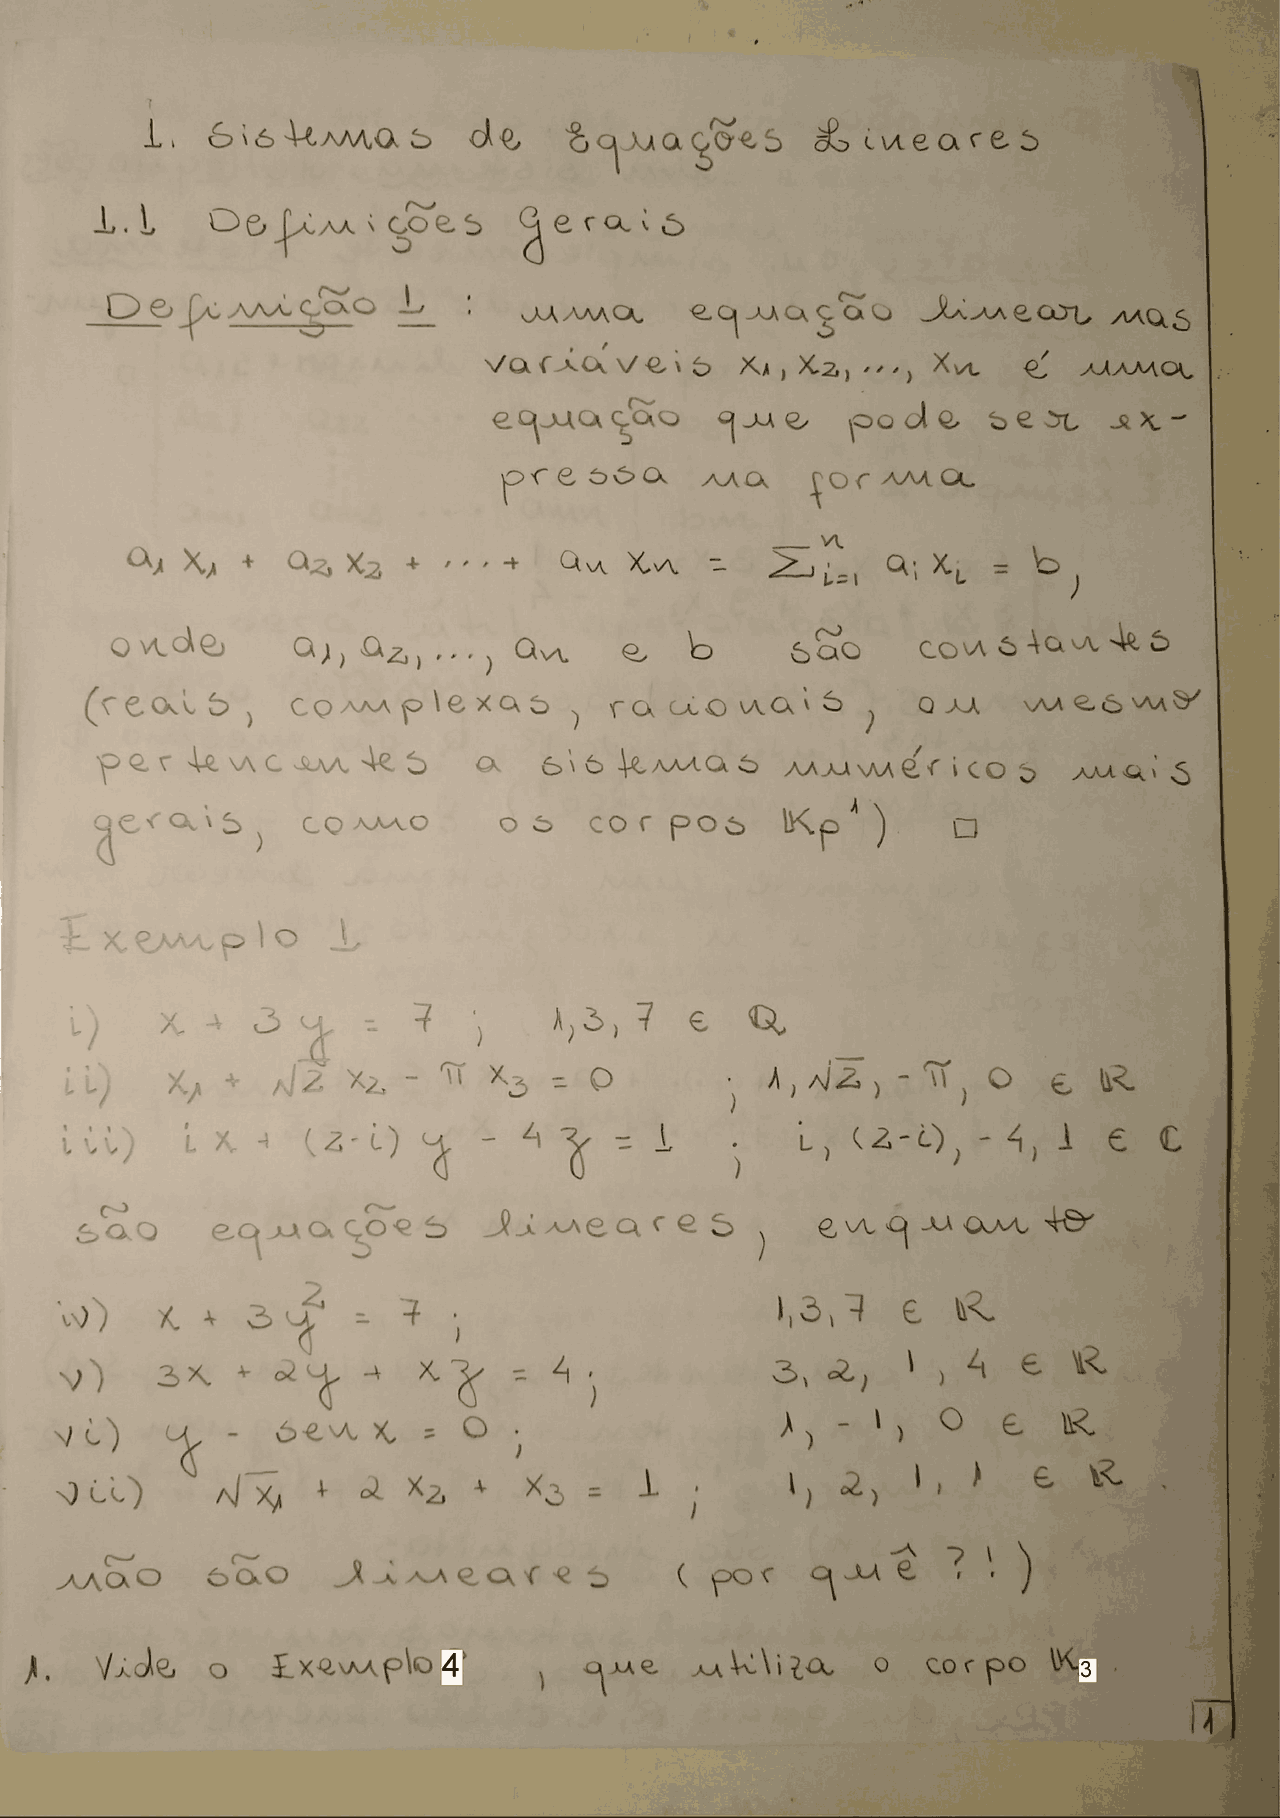 1. Sistemas de Equações Lineares
1.1 Definições Gerais
Definição 1 : uma equação linear nas
variáveis x₁, x₂, ..., xₙ é uma
equação que pode ser ex-
pressa na forma
a₁ x₁ + a₂ x₂ + ... + aₙ xₙ = Σⁿᵢ₌₁ aᵢ xᵢ = b,
onde a₁, a₂, ..., aₙ e b são constantes
(reais, complexas, racionais, ou mesmo
pertencentes a sistemas numéricos mais
gerais, como os corpos 𝕂p¹) □
Exemplo 1
i) x + 3y = 7 ; 1, 3, 7 ∈ ℚ
ii) x₁ + √2 x₂ - π x₃ = 0 ; 1, √2, -π, 0 ∈ ℝ
iii) ix + (2-i) y - 4z = 1 ; i, (2-i), -4, 1 ∈ ℂ
são equações lineares, enquanto
iv) x + 3y² = 7 ; 1, 3, 7 ∈ ℝ
v) 3x + 2y + xz = 4 ; 3, 2, 1, 4 ∈ ℝ
vi) y - sen x = 0 ; 1, -1, 0 ∈ ℝ
vii) √x₁ + 2 x₂ + x₃ = 1 ; 1, 2, 1, 1 ∈ ℝ.
não são lineares (por quê ?!)
1. Vide o Exemplo 4 , que utiliza o corpo 𝕂₃
1